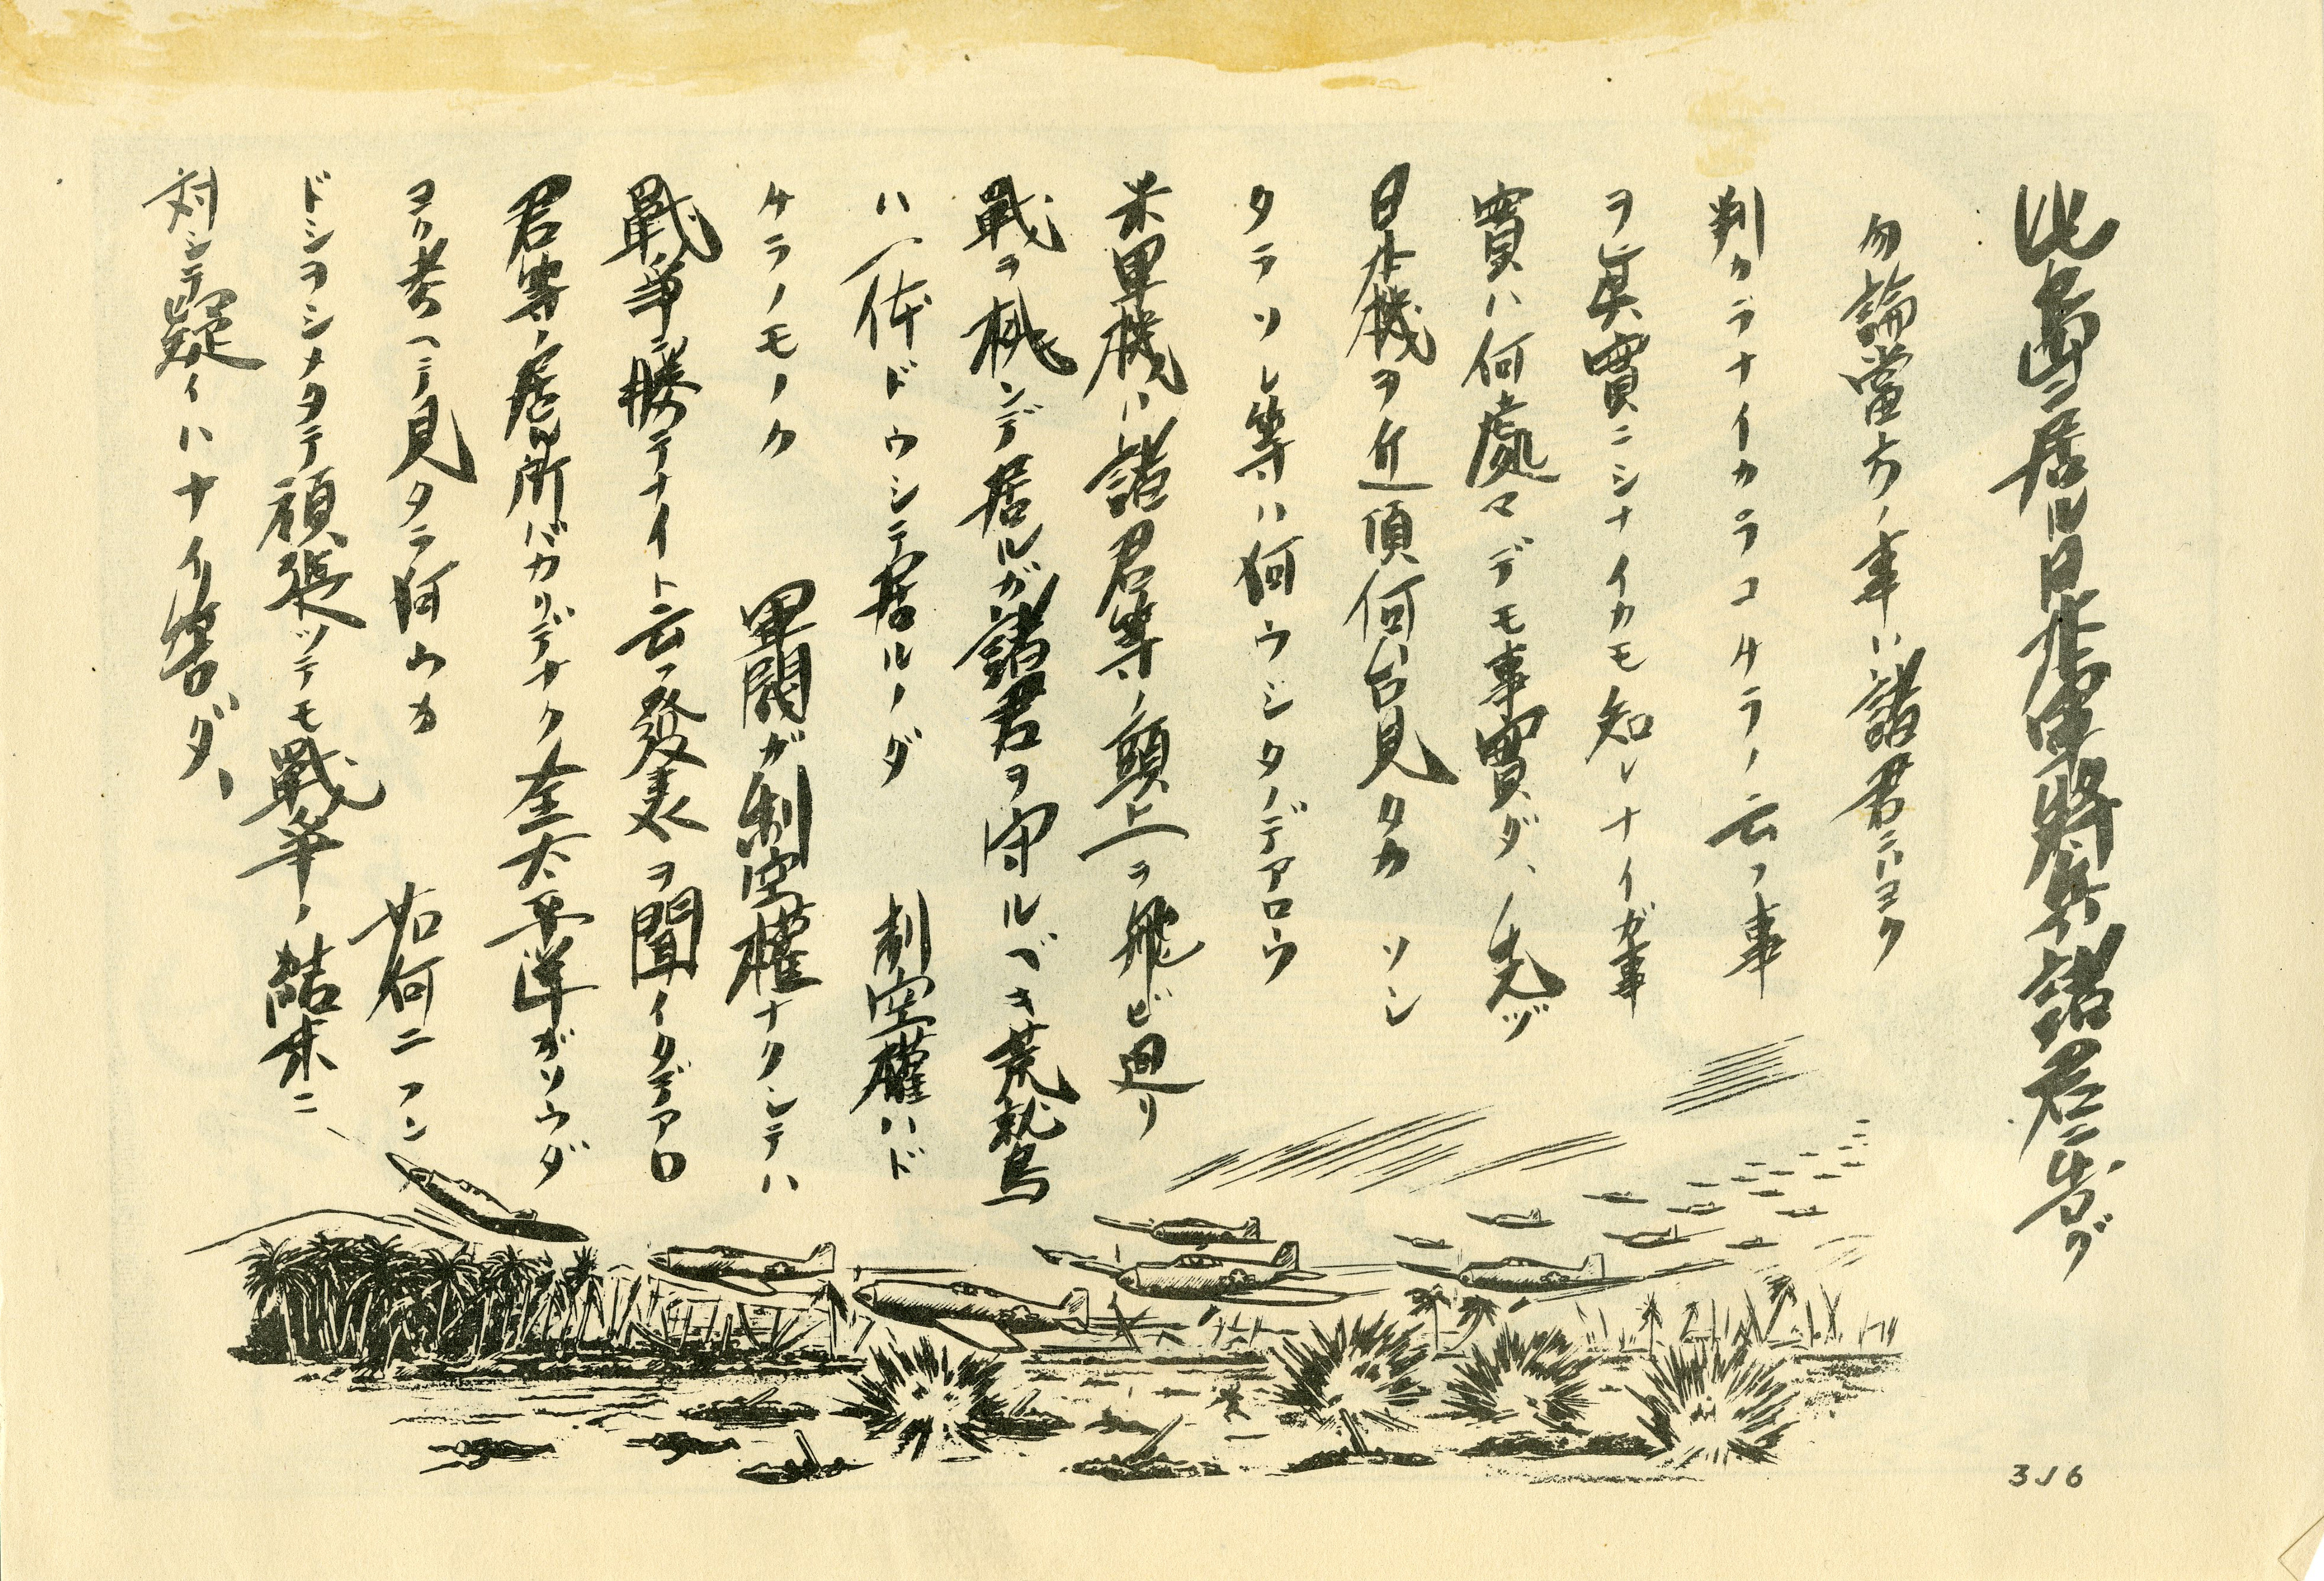 此島ニ居ル日本軍將兵諸君ニ告グ
勿論當方ノ事ハ諸君ニハヨク
判ラナイカラコチラノ云フ事
ヲ眞實ニシナイカモ知レナイガ事
實ハ何處マデモ事實ダ、先ヅ
日本機ヲ近頃何台見タカ ソシ
タラソレ等ハ何ウシタノデアロウ
米軍機ハ諸君等ノ頭上ヲ飛ビ廻リ
戰ヲ挑ンデ居ルガ諸君ヲ守ルベキ荒鷲
ハ一体ドウシテ居ルノダ 制空權ハド
チラノモノカ 軍閥ガ制空權ナクシテハ
戰爭ニ勝テナイト云フ發表ヲ聞イタデアロ
君等ノ居所バカリデナク全太平洋ガソウダ
ヨク考ヘテ見タラ何ウカ 如何ニフン
ドシヲシメタテ頑張ツテモ戰爭ノ結末ニ
対シテ疑イハナイ筈ダ、
3J6